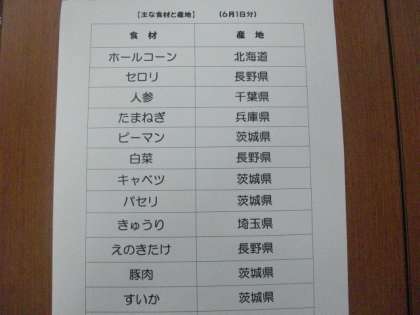 【主な食材と産地】 （6月1日分）
食 材 産 地
ホールコーン 北海道
セロリ 長野県
人参 千葉県
たまねぎ 兵庫県
ピーマン 茨城県
白菜 長野県
キャベツ 茨城県
パセリ 茨城県
きゅうり 埼玉県
えのきたけ 長野県
豚肉 茨城県
すいか 茨城県